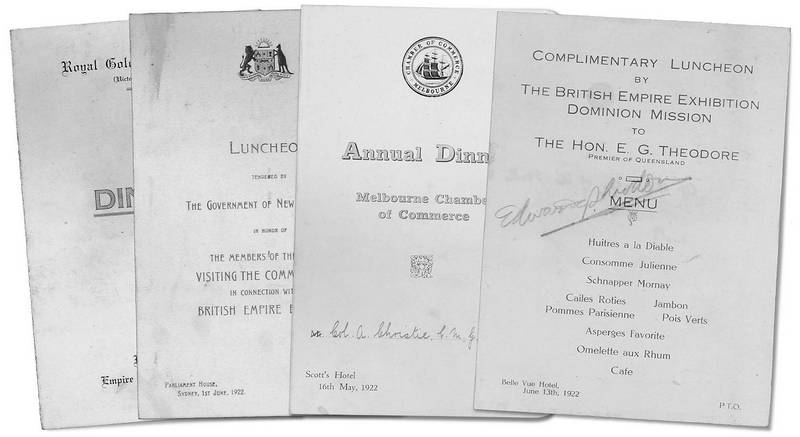 Royal Gol
(Victo
DIN
Empire
LUNCHEO
TENDERED BY
THE GOVERNMENT OF NEW
IN HONOR OF
THE MEMBERS OF THE
VISITING THE COMM
IN CONNECTION WIT
BRITISH EMPIRE E
PARLIAMENT HOUSE,
SYDNEY, 1ST JUNE, 1922.
CHAMBER OF COMMERCE
MELBOURNE
Annual Dinn
Melbourne Chambe
of Commerce
Col. A. Christie, C. M. G.
Scott's Hotel
16th May, 1922
COMPLIMENTARY LUNCHEON
BY
THE BRITISH EMPIRE EXHIBITION
DOMINION MISSION
TO
THE HON. E. G. THEODORE
PREMIER OF QUEENSLAND
MENU
Huitres a la Diable
Consomme Julienne
Schnapper Mornay
Cailes Roties Jambon
Pommes Parisienne Pois Verts
Asperges Favorite
Omelette aux Rhum
Cafe
Belle Vue Hotel,
June 13th, 1922
P.T.O.